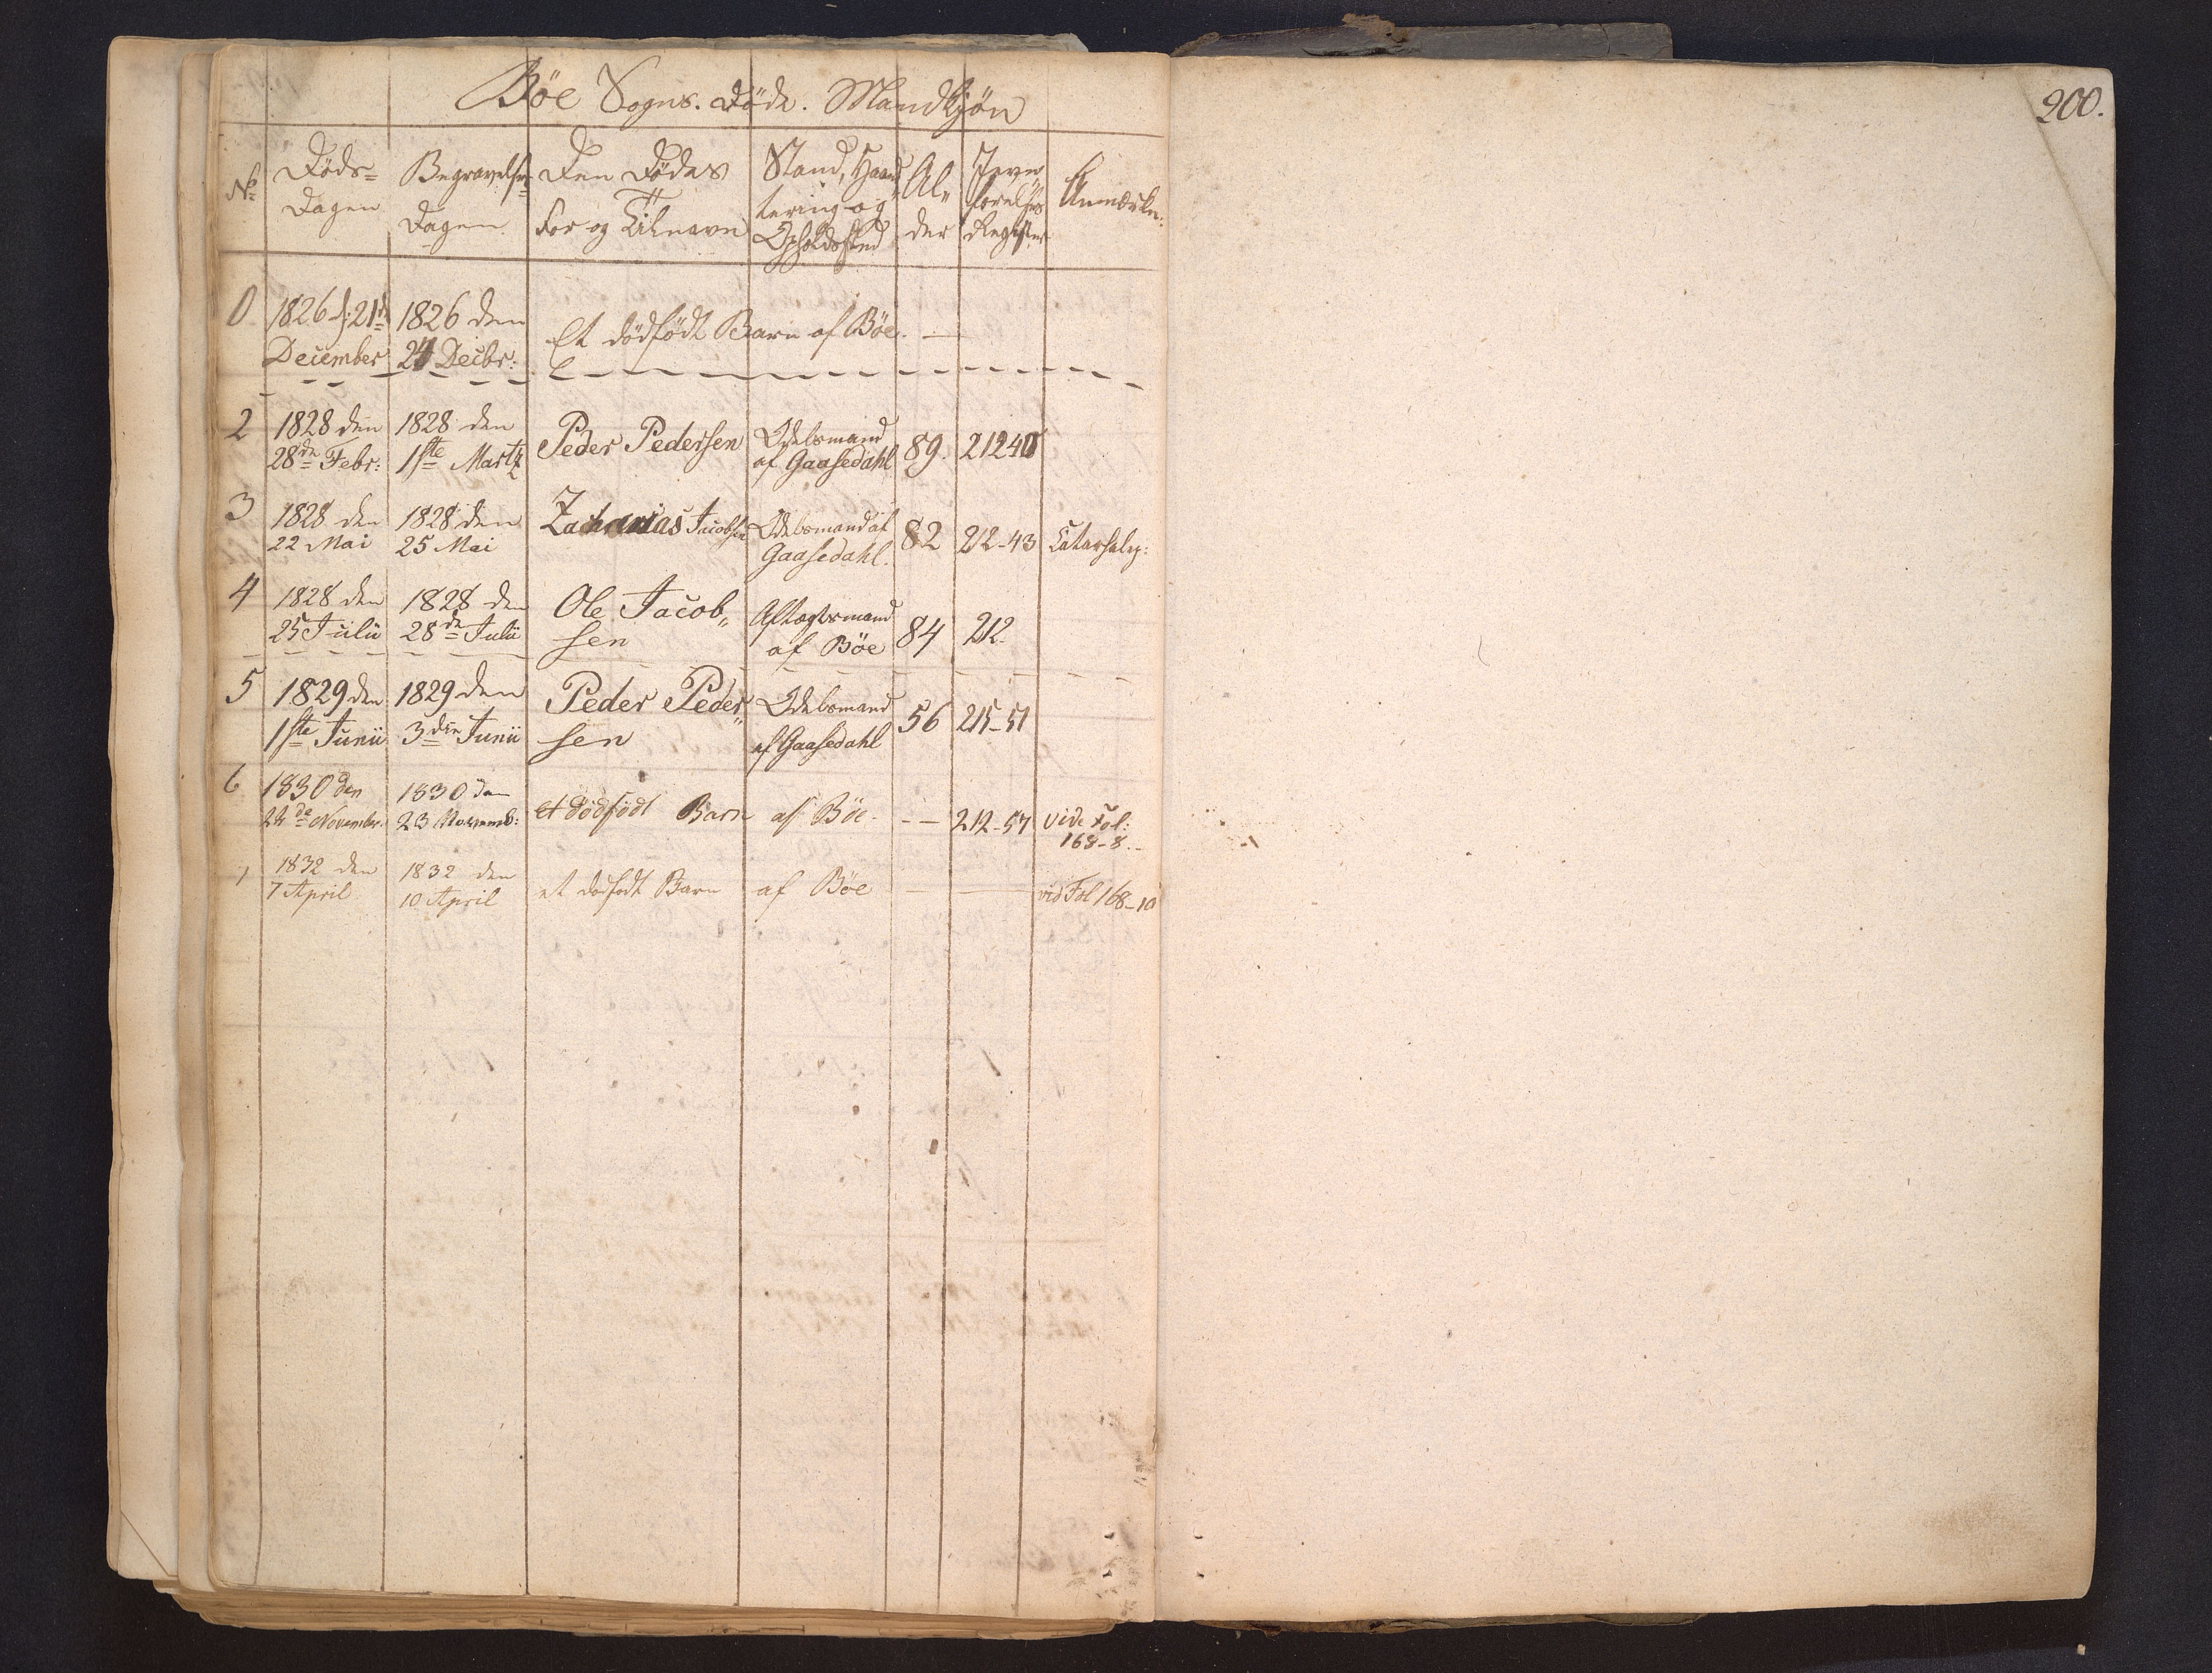 200.
Böe Sogns. Döde. Mandkjön
No
Döds-
Dagen
Begravelses-
Dagen
Den Dödes
For og Tilnavn
Stand, Haand
tering og
Opholdssted
Al„
der
Jevn„
förelses
Register
Anmærkn:
0 1826 d: 21de 1826 den
December 24 Decbr: Et dödfödt Barn af Böe. —
2 1828 den 1828 den Peder Pedersen Odelsmand 89. 212 40
28de Febr: 1ste Martz af Gaasedahl
3 1828 den 1828 den Zacharias Jacobsen Odelsmand af 82 212-43
22 Mai 25 Mai Gaasedahl.
4 1828 den 1828 den Ole Jacob„ Aftægtsmand 84 212.
25 Julii 28de Julii sen af Böe
5 1829 den 1829 den Peder Peder„ Odelsmand 56 215-51
1ste Junii 3den Junii sen af Gaasedahl
6 1830 den 1830 den et dödfödt Barn af Böe. - — 212-57 vide Fol:
22de November. 23 Novemb: 168-8.-
7 1832 den 1832 den et dödfödt Barn af Böe — — vid Fol 168-10
7 April 10 April